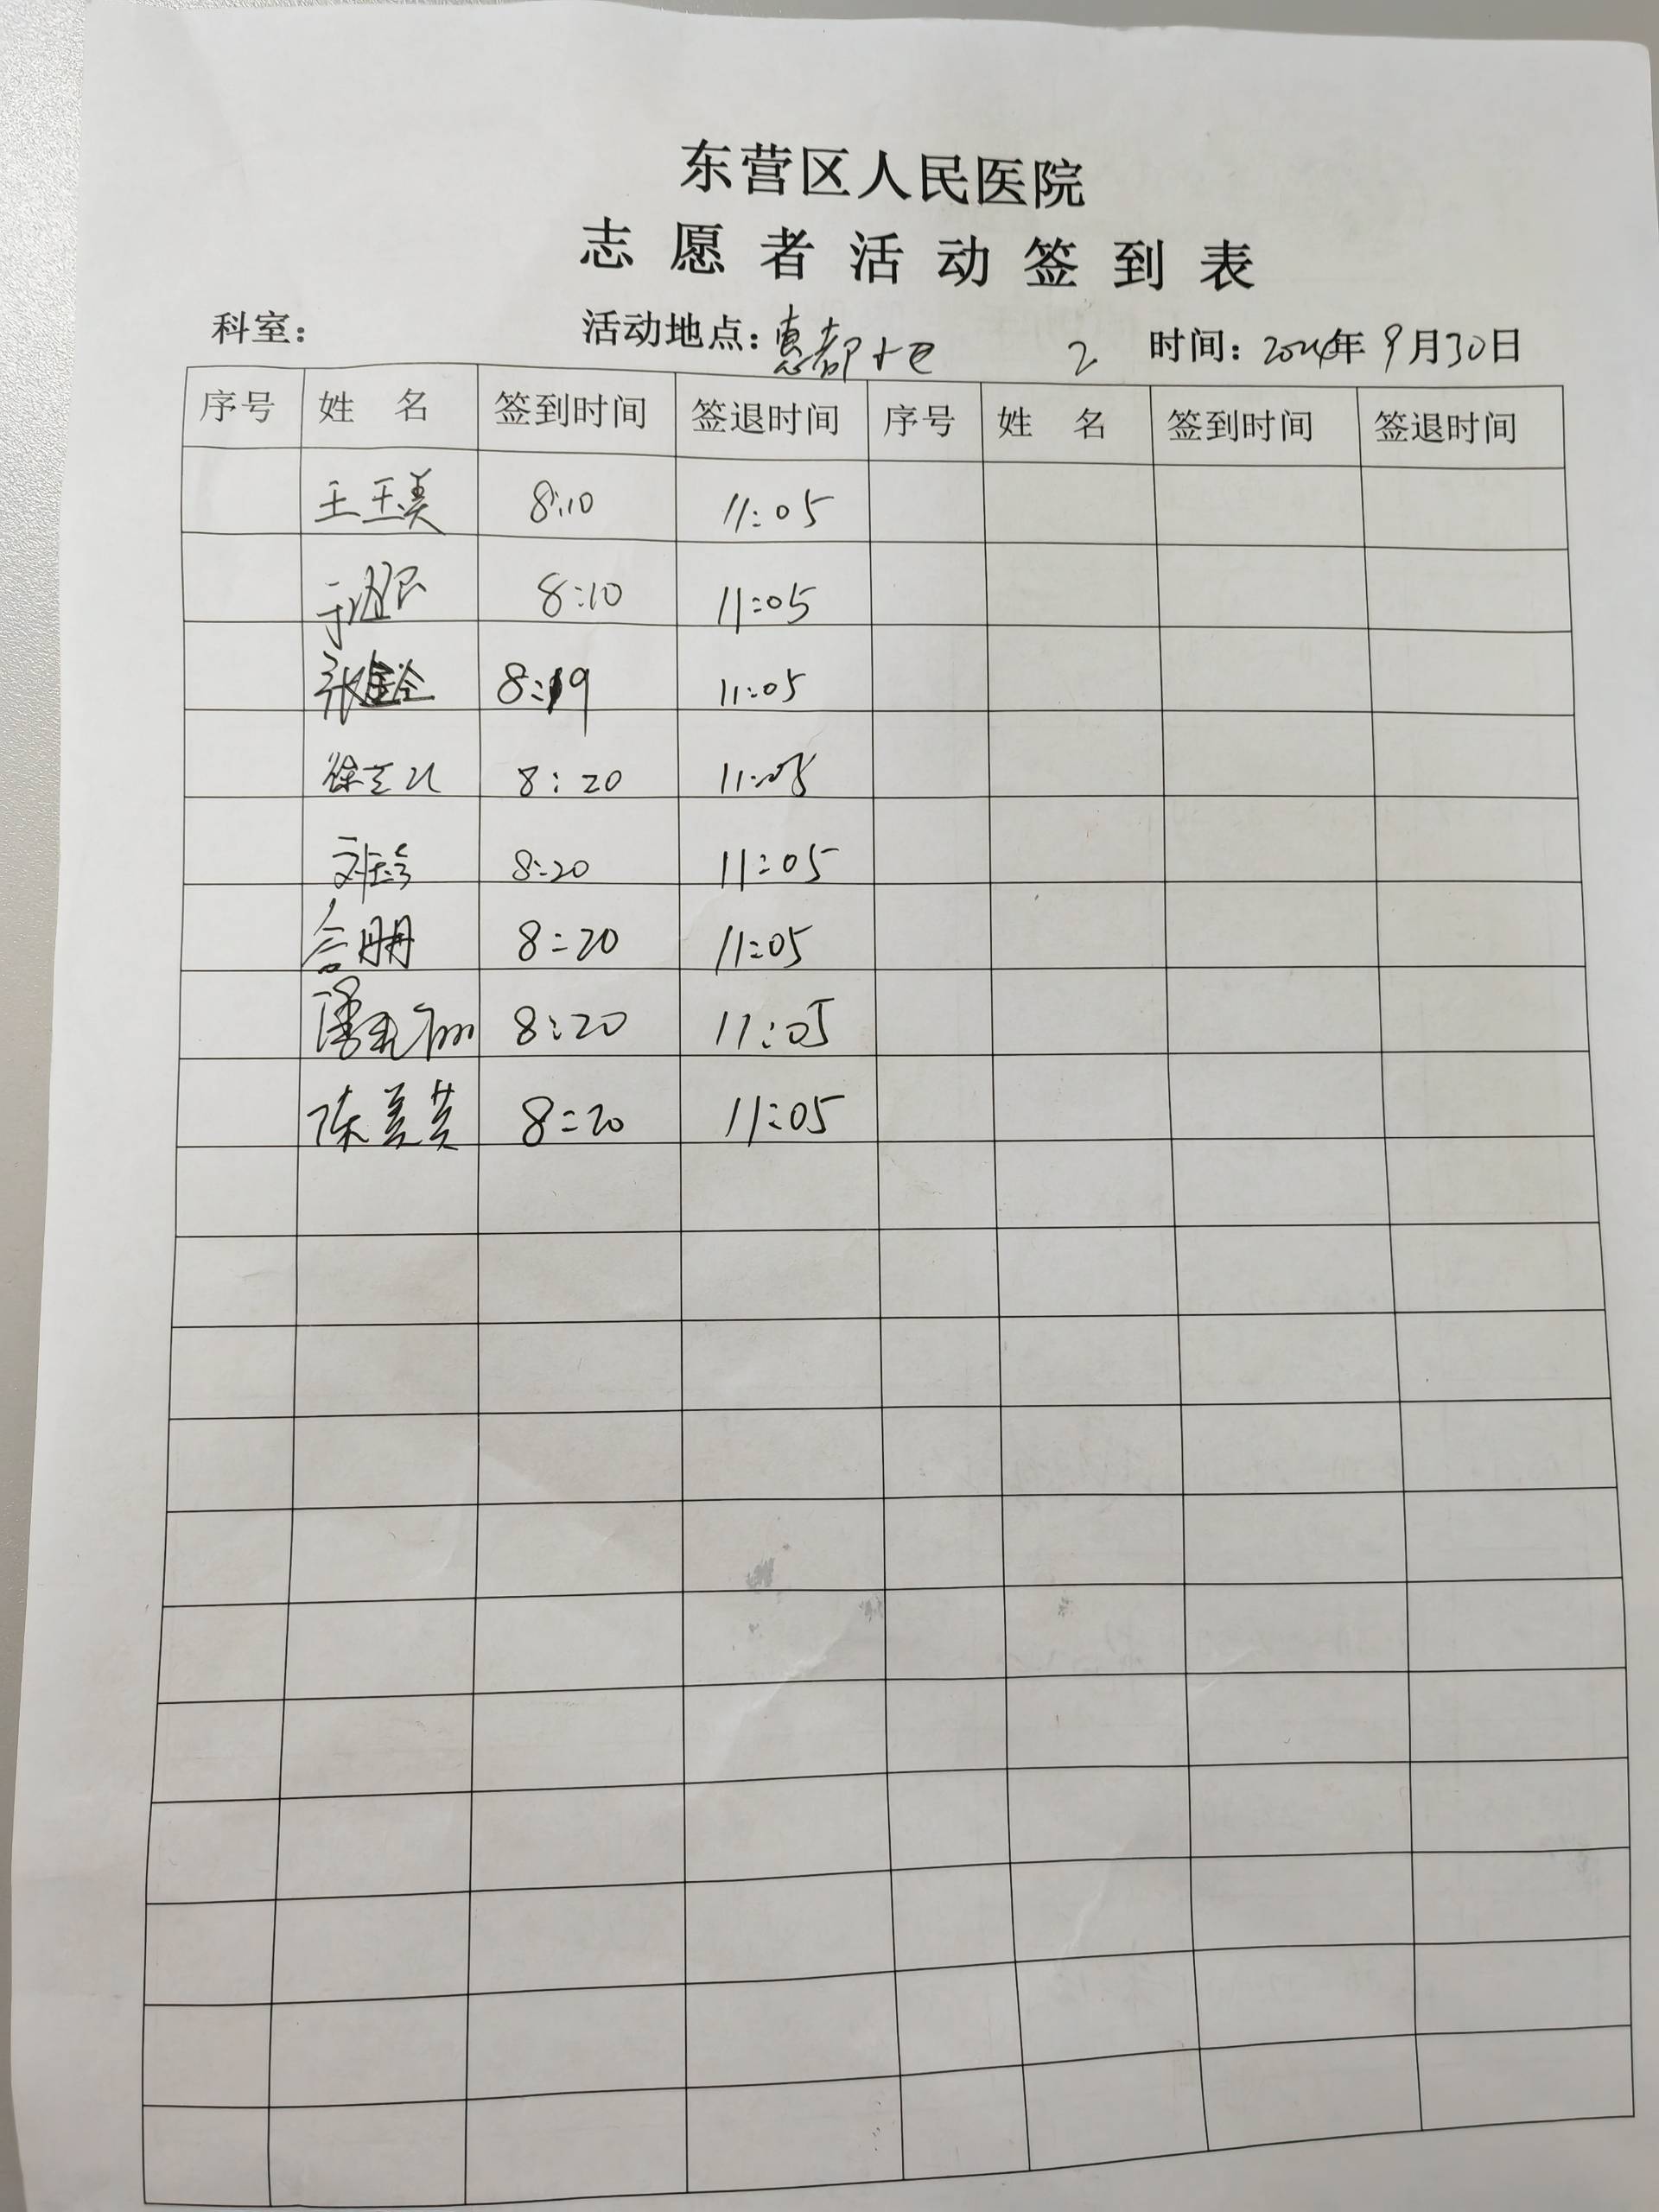 东营区人民医院
志愿者活动签到表
科室： 活动地点：惠都小区 2 时间：2024年9月30日
序号 姓 名 签到时间 签退时间 序号 姓 名 签到时间 签退时间
王玉美 8:10 11:05
8:10 11:05
张 8:19 11:05
徐 8:20 11:05
刘 8:20 11:05
8:20 11:05
潘 8:20 11:05
陈美英 8:20 11:05